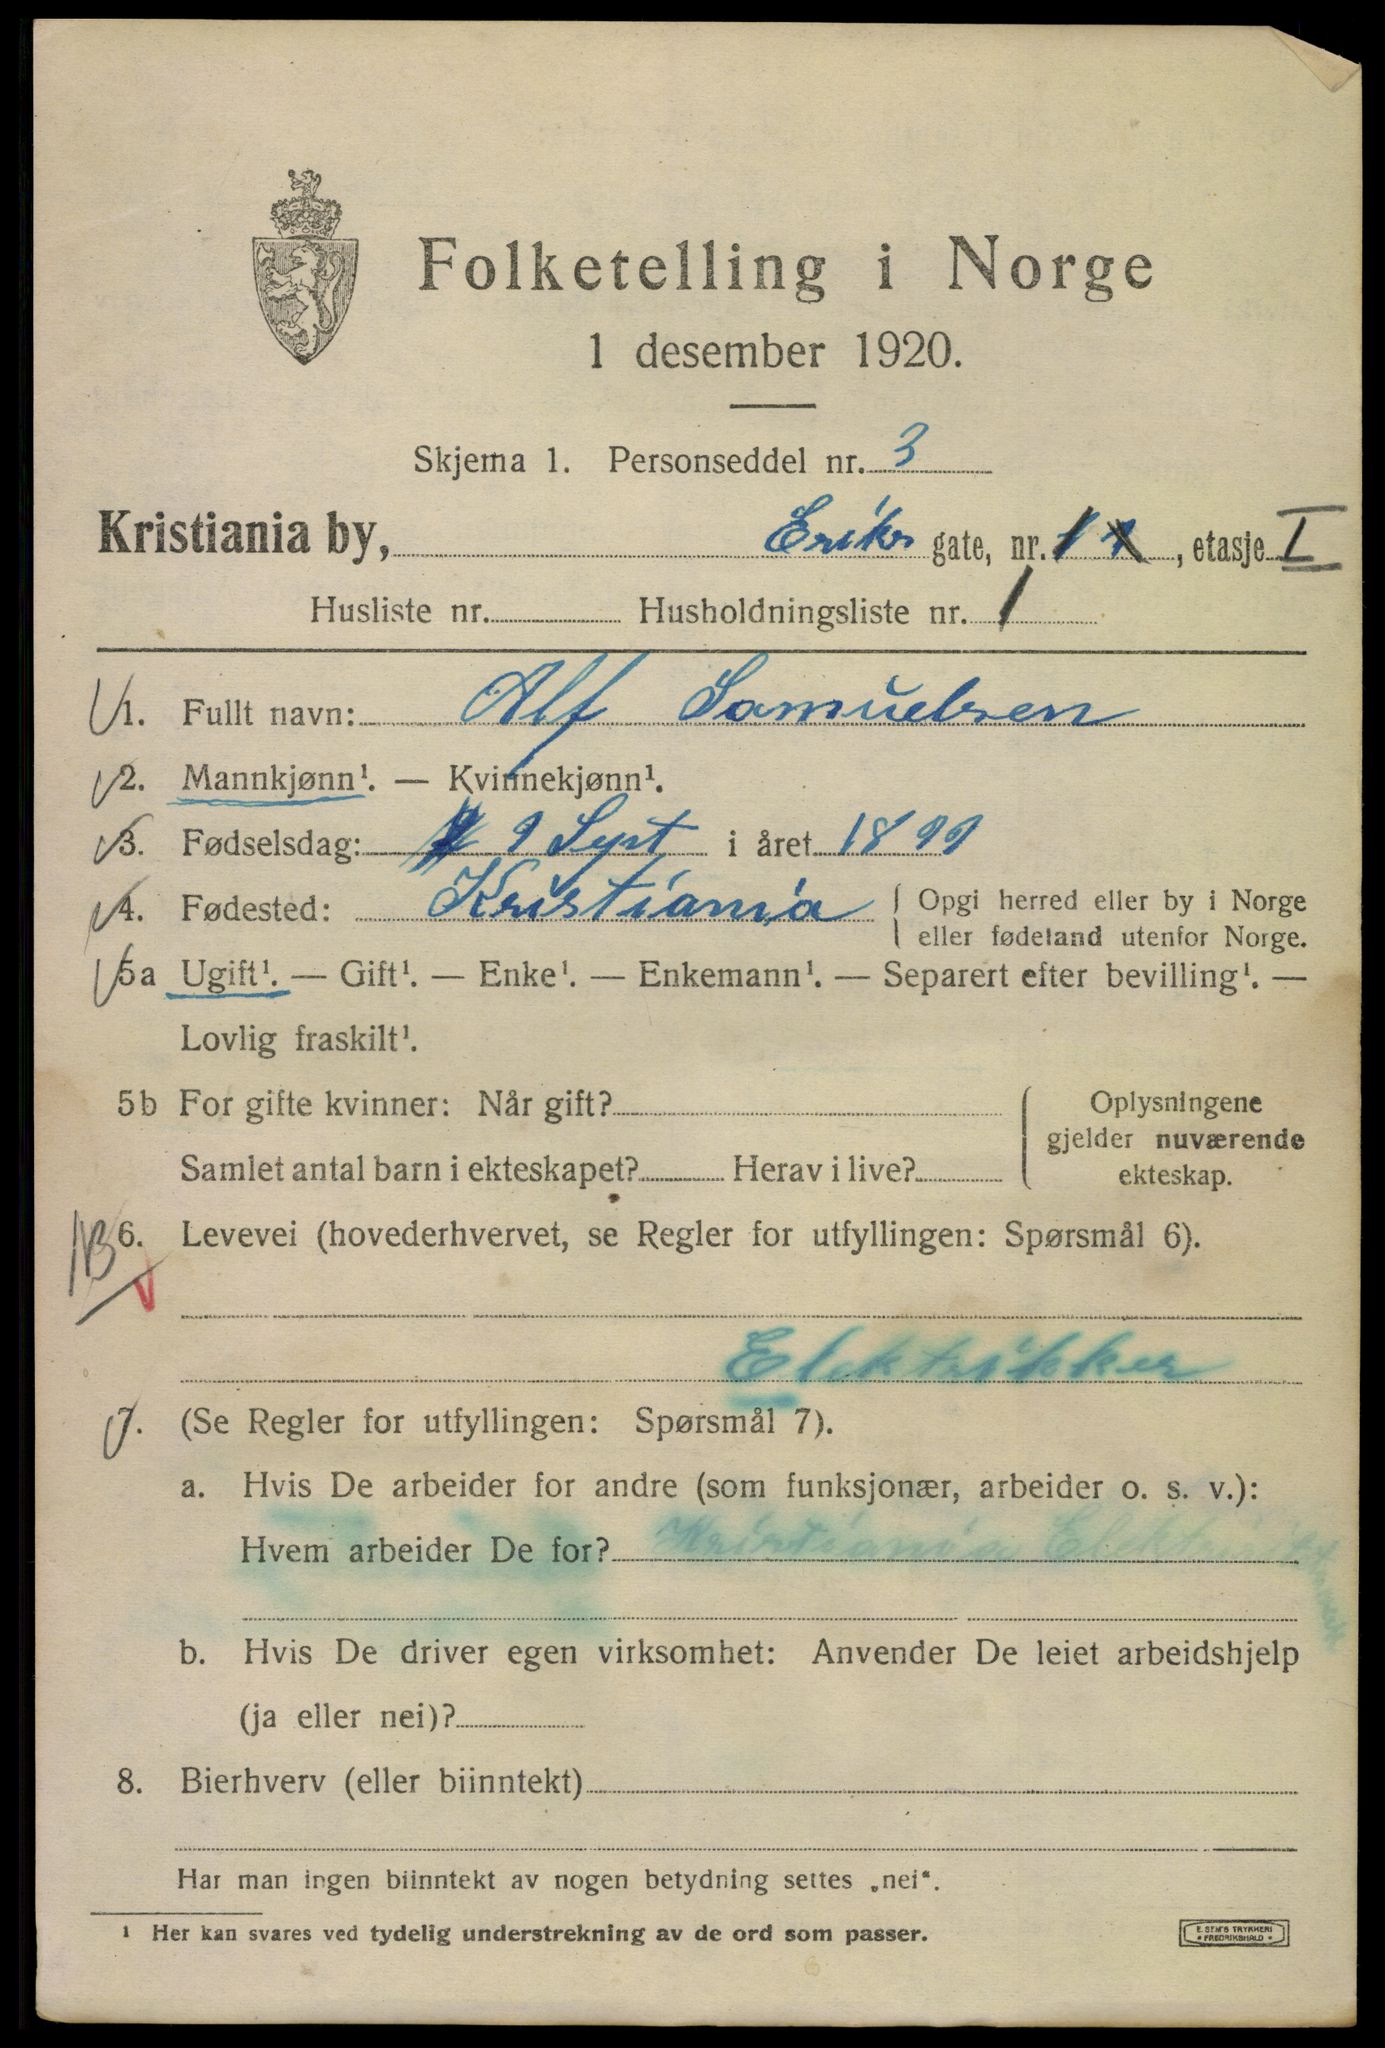 Folketelling i Norge
1 desember 1920.
Skjema 1. Personseddel nr. 3
Kristiania by, Eriks gate, nr. 1, etasje I
Husliste nr. Husholdningsliste nr. 1
1. Fullt navn: Alf Samuelsen
2. Mannkjønn¹. — Kvinnekjønn¹.
3. Fødselsdag: 9 Sept i året 1899
4. Fødested: Kristiania { Opgi herred eller by i Norge
eller fødeland utenfor Norge.
5a Ugift¹. — Gift¹. — Enke¹. — Enkemann¹. — Separert efter bevilling¹. —
Lovlig fraskilt¹.
5b For gifte kvinner: Når gift? { Oplysningene
gjelder nuværende
Samlet antal barn i ekteskapet? Herav i live? ekteskap.
6. Levevei (hovederhvervet, se Regler for utfyllingen: Spørsmål 6).
Elektrikker
7. (Se Regler for utfyllingen: Spørsmål 7).
a. Hvis De arbeider for andre (som funksjonær, arbeider o. s. v.):
Hvem arbeider De for? Kristiania
b. Hvis De driver egen virksomhet: Anvender De leiet arbeidshjelp
(ja eller nei)?
8. Bierhverv (eller biinntekt)
Har man ingen biinntekt av nogen betydning settes „nei“.
¹ Her kan svares ved tydelig understrekning av de ord som passer.
E. SEM'S TRYKKERI
• FREDRIKSHALD •